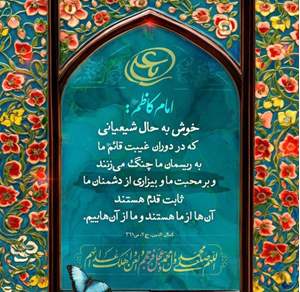 یا علی
امام کاظم؏:
خوش به حال شیعیانی
که در دوران غیبت قائم ما
به ریسمان ما چنگ می‌زنند
و بر محبت ما و بیزاری از دشمنان ما
ثابت قدم هستند
آن‌ها از ما هستند و ما از آن‌هاییم.
کمال الدین، ج۲، ص۳۶۱
اللهم صل علی محمد و آل محمد و عجل فرجهم